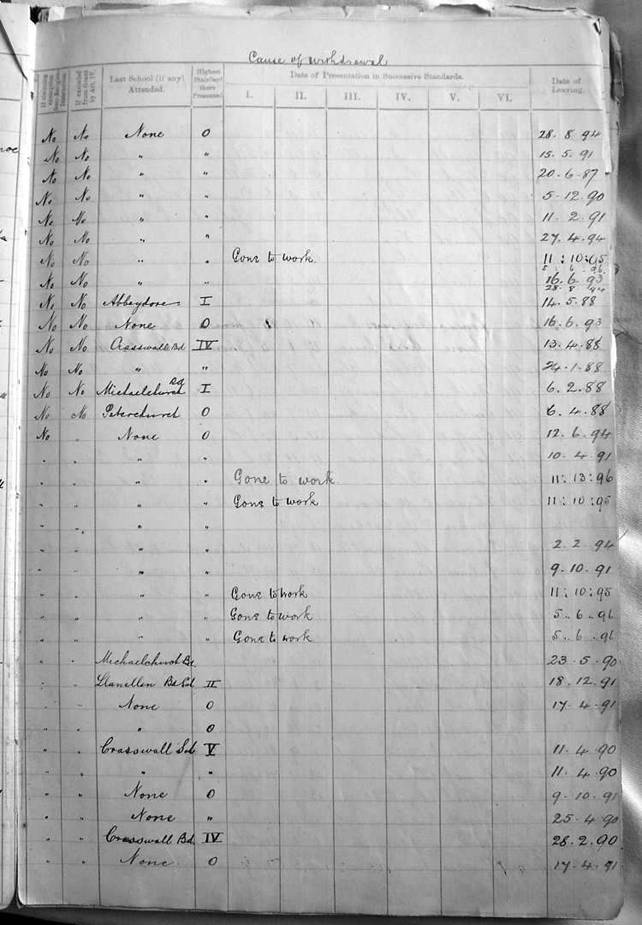 Cause of withdrawal
Last School (if any) Attended.
Highest Standard there Presented.
Date of Presentation in Successive Standards.
I. II. III. IV. V. VI.
Date of Leaving.
No No None 0 28.8.94
No No " " 15.5.91
No No " " 20.6.87
No No " " 5.12.90
No No " " 11.2.91
No No " " 27.4.94
No No " " Gone to work 11:10:05
5.6.96
No No " " 16.6.93
28.8.94
No No Abbeydore I 14.5.88
No No None 0 16.6.93
No No Crasswall Bd IV 13.4.88
No No " " 24.1.88
No No Michaelchurch Bd I 6.2.88
No No Peterchurch 0 6.4.88
No " None 0 12.6.94
" " " " 10.4.91
" " " " Gone to work 11:13:96
" " " " Gone to work 11:10:95
" " " "
" " " " 2.2.94
" " " " 9.10.91
" " " " Gone to work 11:10:95
" " " " Gone to work 5.6.96
" " " " Gone to work 5.6.96
" " Michaelchurch Bd 23.5.90
" " Llanellen Bd Scl II 18.12.91
" " None 0 17.4.91
" " " 0
" " Crasswall Scl V 11.4.90
" " " " 11.4.90
" " None 0 9.10.91
" " None " 25.4.90
" " Crasswall Bd IV 28.2.90
" " None 0 17.4.91